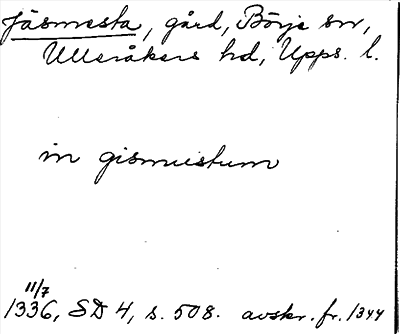 Jäsmesta, gård, Börje sn,
Ulleråkers hd, Upps. l.
in gismestum
11/7
1336, SD 4, s. 508. avskr. fr. 1344